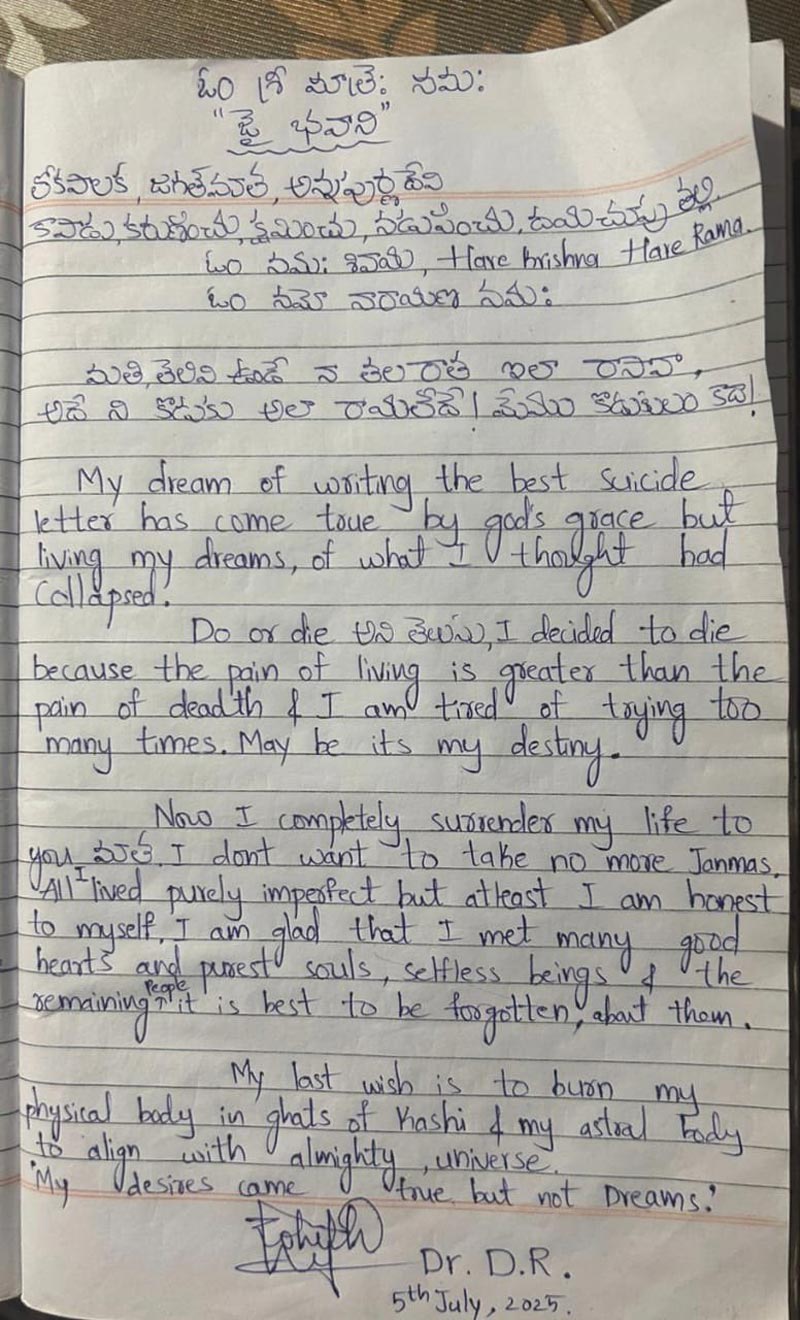 ఓం శ్రీ మాత్రే: నమ:
"జై భవాని"
లోకపాలక, జగత్‌మాత, అన్నపూర్ణ దేవి
కాపాడు, కరుణించు, క్షమించు, నడుపించు, దయచుపు తల్లి
ఓం నమ: శివాయ, Hare krishna Hare Rama.
ఓం నమో నారాయణ నమ:
మతి, తెలివి ఉండే నా తల రాత ఇలా రాసావా,
అదే ని కొడుకు అలా రాయలేదే! మేము కొడుకులం కదా!
My dream of writing the best suicide
letter has come true by god's grace but
living my dreams, of what I thought had
Collapsed.
Do or die అని తెలుసు, I decided to die
because the pain of living is greater than the
pain of deadth & I am tired of trying too
many times. May be its my destiny.
Now I completely surrender my life to
you మాత. I dont want to take no more Janmas.
All I lived purely imperfect but atleast I am honest
to myself. I am glad that I met many good
hearts and purest souls, selfless beings & the
remaining People it is best to be forgotten, about them.
My last wish is to burn my
physical body in ghats of Kashi & my astral body
to align with almighty, universe.
"My desires came true but not Dreams."
Dr. D.R.
5th July, 2025.